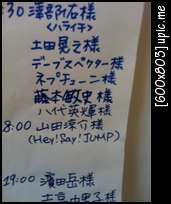 30 澤部佑様
<ハライチ>
土田晃之様
デーブスペクター様
ネプチューン様
藤本敏史様
八代英輝様
8:00 山田涼介様
(Hey! Say! JUMP)
19:00 濱田岳様
[600x803] upic.me